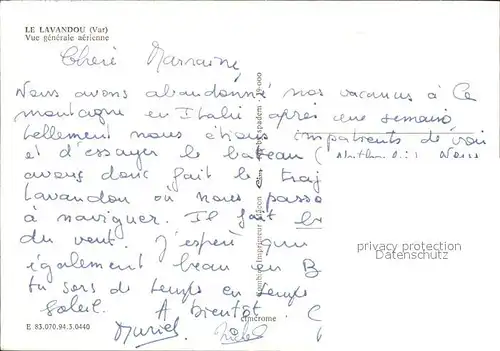 LE LAVANDOU (Var)
Vue générale aérienne
Cherè Marraine,
Nous avons abandonné nos vacances à la
montagne en Italie après une semaine
tellement nous étions impatients de voir
et d'essayer le bateau ( Nous
avons donc fait le traj
Lavandou où nous passo
à naviguer. Il fait be
du vent. J'espère que
également beau en B
tu sors de temps en temps
soleil. A bientôt.
Muriel Michel
privacy protection
Datenschutz
Combier Imprimeur Mâcon
cimcrome
E 83.070.94.5.0440